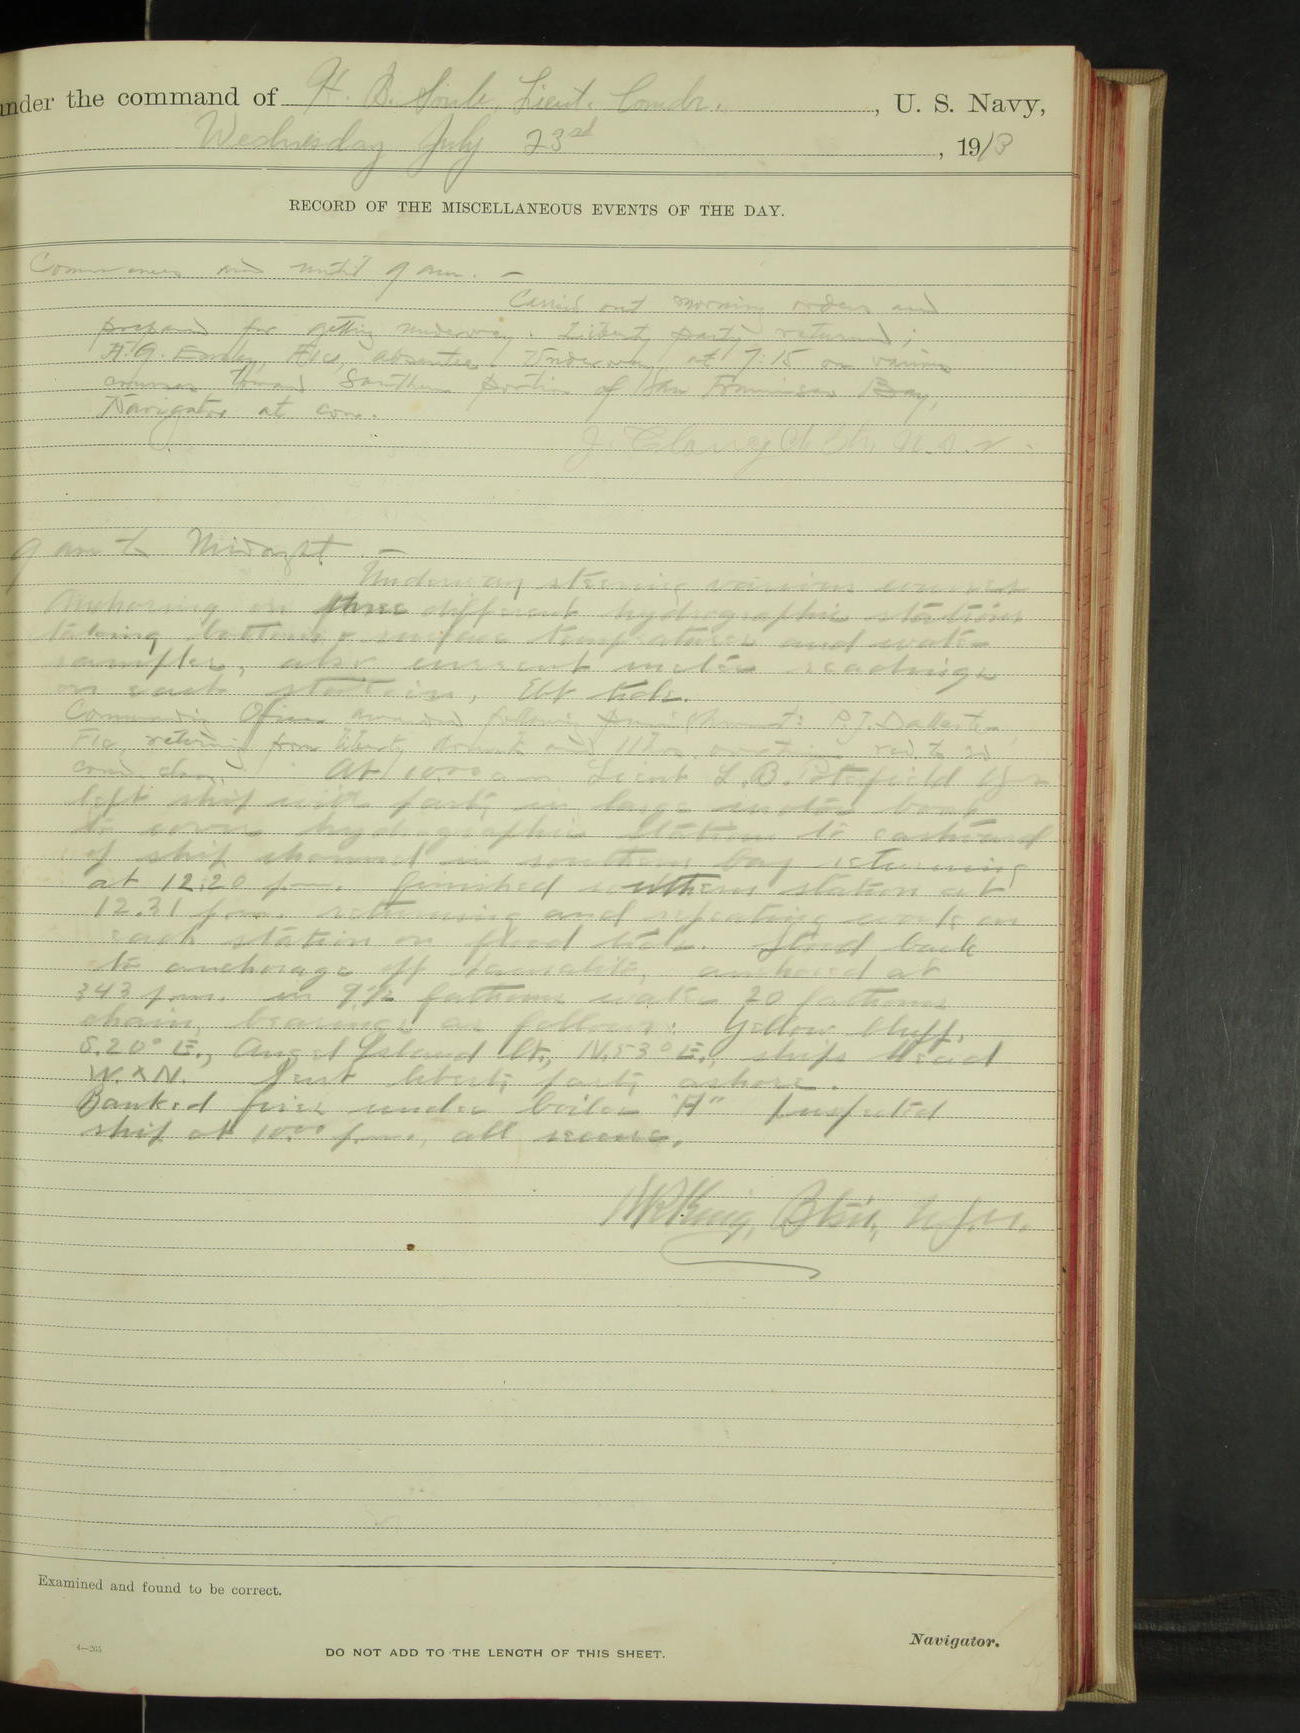 under the command of H. B. Soule, Lieut. Comdr., U. S. Navy,
Wednesday July 23rd, 1913
RECORD OF THE MISCELLANEOUS EVENTS OF THE DAY.
Commences and until 9 am. —
Carried out morning orders and
prepared for getting underway. Liberty party returned;
F1c, absentee. Underway at 7:15 on various
courses toward Southern portion of San Francisco Bay,
Navigator at con.
J. Clancy Ch. Btn, U.S.N.
9 am to Midnight. —
Underway steering various courses
Anchoring on three different hydrographic stations
taking bottom & surface temperatures and water
samples, also current meter readings
on each station, Ebb tide.
Commanding Officer awarded following punishment: P.J.
F1c, returning from liberty drunk and 11 hrs. overtime red. to 2d
cond. class. At 10:00 am Lieut L.B. Porterfield USN
left ship with party in large motor boat
to cover hydrographic stations to eastward
of ship channel in southern bay returning
at 12:20 p.m. Finished southern station at
12.31 p.m. returning and repeating work on
each station on flood tide. Stood back
to anchorage off Sausalito, anchored at
343 p.m. in 9½ fathoms water 20 fathoms
chain, bearings as follows: Yellow bluff,
S.20° E., Angel Island Lt, N.53° E., ships head
W.xN. Sent liberty party ashore.
Banked fires under boiler "A" Inspected
ship at 10:00 p.m., all secure.
King, Btsn, U.S.N.
Examined and found to be correct.
Navigator.
4—265
DO NOT ADD TO THE LENGTH OF THIS SHEET.